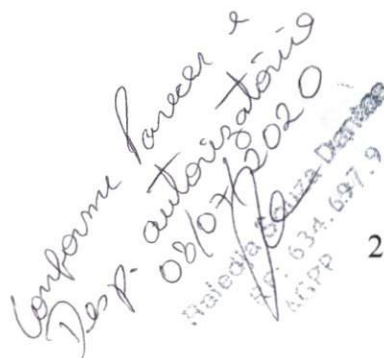 Conforme Parecer e
Desp. autorizatório
08/07/2020
Souza Dantas
RF: 634.697.9
AGPP
2